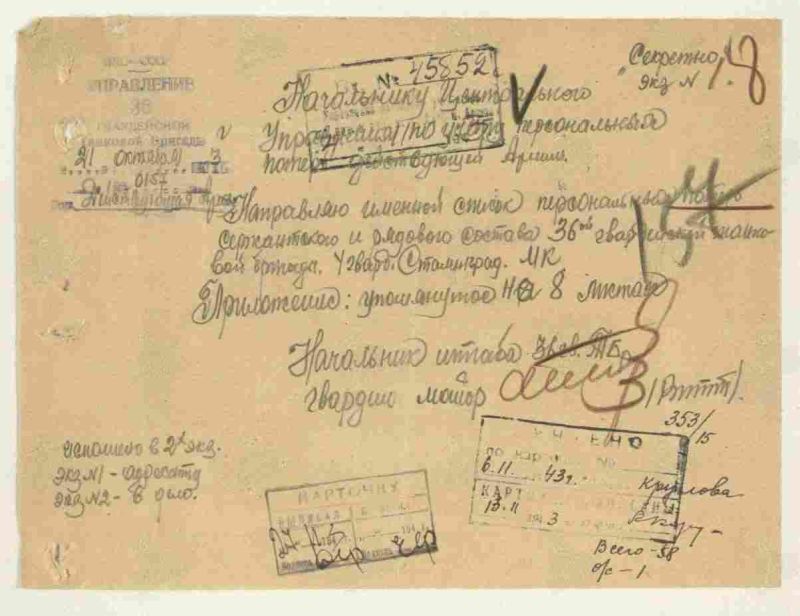 Секретно
экз N 1.
УПРАВЛЕНИЕ
36
ГВАРДЕЙСКОЙ
Танковой Бригады
21 октября 3
№ 45852
Начальнику Центрального
Управления по учёту персональных
потерь действующей Армии.
Направляю именной список персональных потерь
сержантского и рядового состава 36ой гвардейской танко-
вой бригады. 4 гвард. Сталинград. МК
Приложение: упомянутое на 8 листах
Начальник штаба
гвардии майор
353/15
исполнено в 2х экз.
экз N1 - адресату
экз N2 - в дело.
КАРТОЧКУ
УЧТЕНО
6.11. 43г.
13.11 1943
Круглова
Всего - 58
о/с - 1